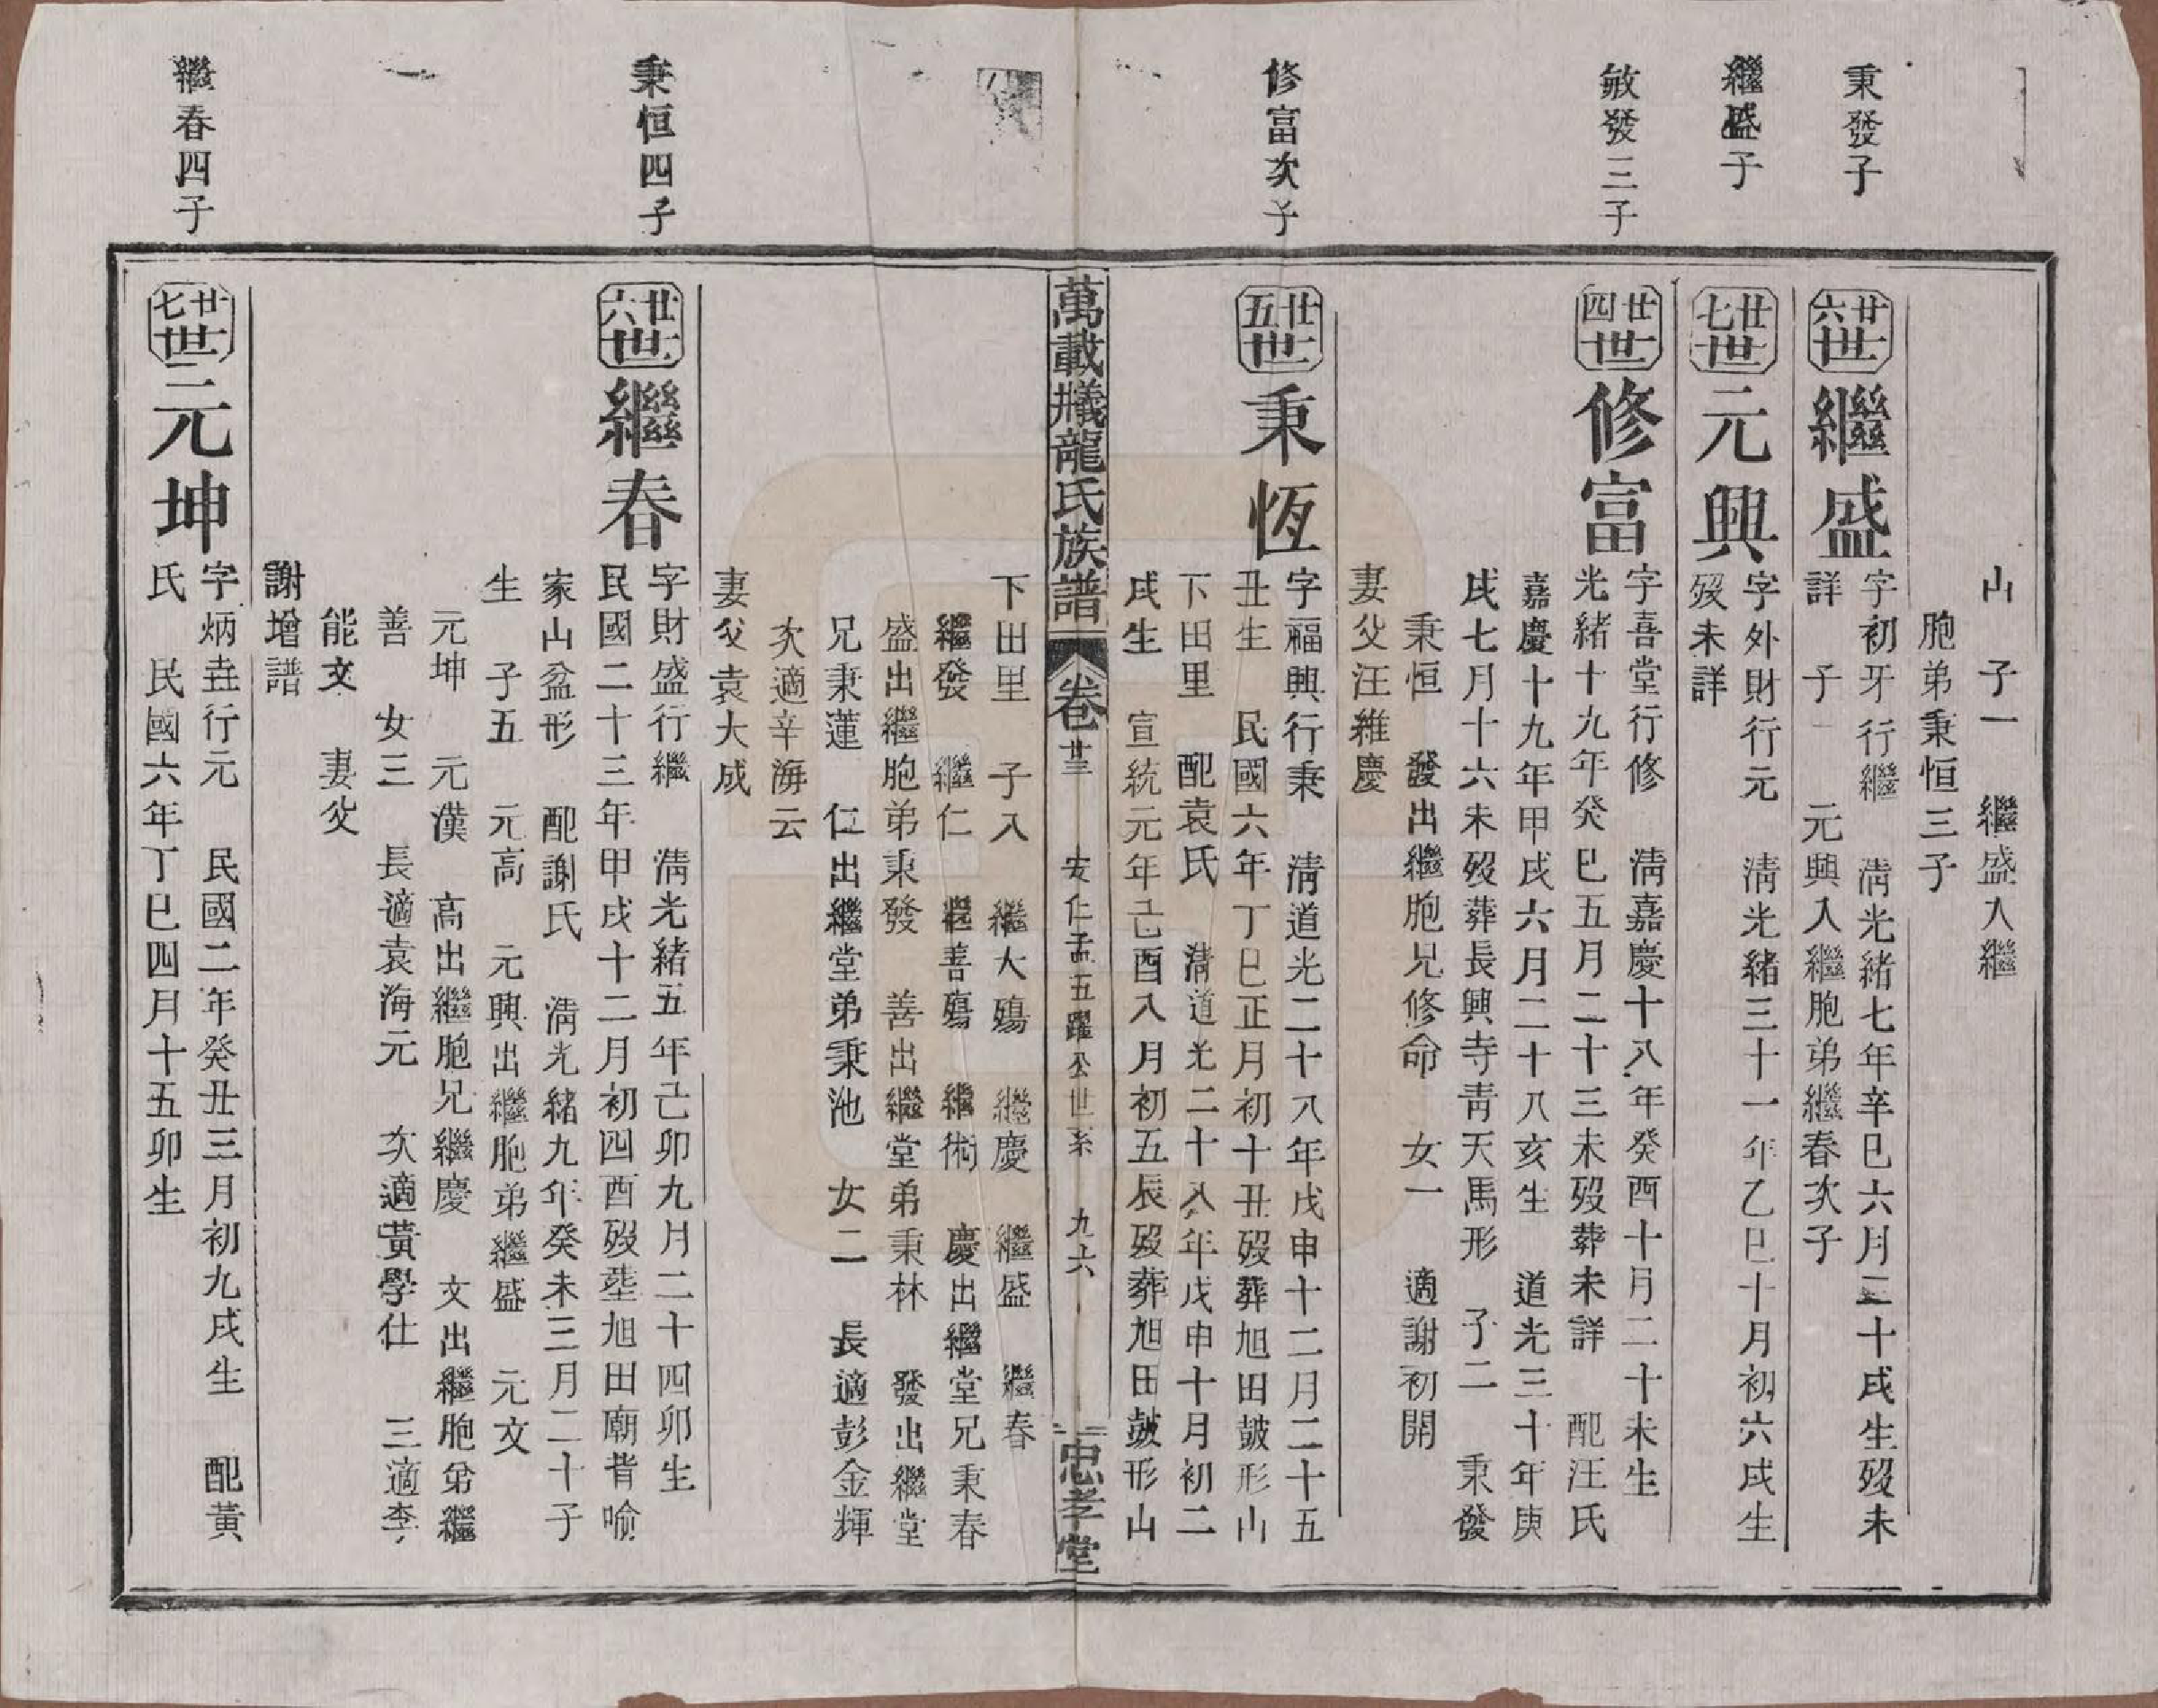 山　子一　繼盛入繼
胞弟秉恒三子
秉發子
廿六世 繼盛
字初牙行繼　淸光緒七年辛巳六月二十戌生歿未
詳　子一　元興入繼胞弟繼春次子
繼盛子
廿七世 元興
字外財行元　淸光緒三十一年乙巳十月初六戌生
歿未詳
敏發三子
廿四世 修富
字喜堂行修　淸嘉慶十八年癸酉十月二十未生
光緒十九年癸巳五月二十三未歿葬未詳　配汪氏
嘉慶十九年甲戌六月二十八亥生　道光三十年庚
戌七月十六未歿葬長興寺靑天馬形　子二　秉發
秉恒　發出繼胞兄修命　女一　適謝初開
妻父汪維慶
修富次子
廿五世 秉恆
字福興行秉　淸道光二十八年戊申十二月二十五
丑生　民國六年丁巳正月初十丑歿葬旭田皷形山
下田里　配袁氏　淸道光二十八年戊申十月初二
戌生　宣統元年己酉八月初五辰歿葬旭田皷形山
萬載㸌龍氏族譜 卷廿三 安仁孟五躍公世系 九六 忠孝堂
下田里　子八　繼大殤　繼慶　繼盛　繼春
繼發　繼仁　繼善殤　繼術　慶出繼堂兄秉春
盛出繼胞弟秉發　善出繼堂弟秉林　發出繼堂
兄秉蓮　仁出繼堂弟秉池　女二　長適彭金輝
次適辛海云
妻父袁大成
秉恒四子
廿六世 繼春
字財盛行繼　淸光緒五年己卯九月二十四卯生
民國二十三年甲戌十二月初四酉歿塟旭田廟背喻
家山盆形　配謝氏　淸光緒九年癸未三月二十子
生　子五　元高　元興出繼胞弟繼盛　元文
元坤　元漢　高出繼胞兄繼慶　文出繼胞弟繼
善　女三　長適袁海元　次適黃學仕　三適李
能文　妻父
謝增譜
繼春四子
廿七世 元坤
字炳垚行元　民國二年癸丑三月初九戌生　配黃
氏　民國六年丁巳四月十五卯生